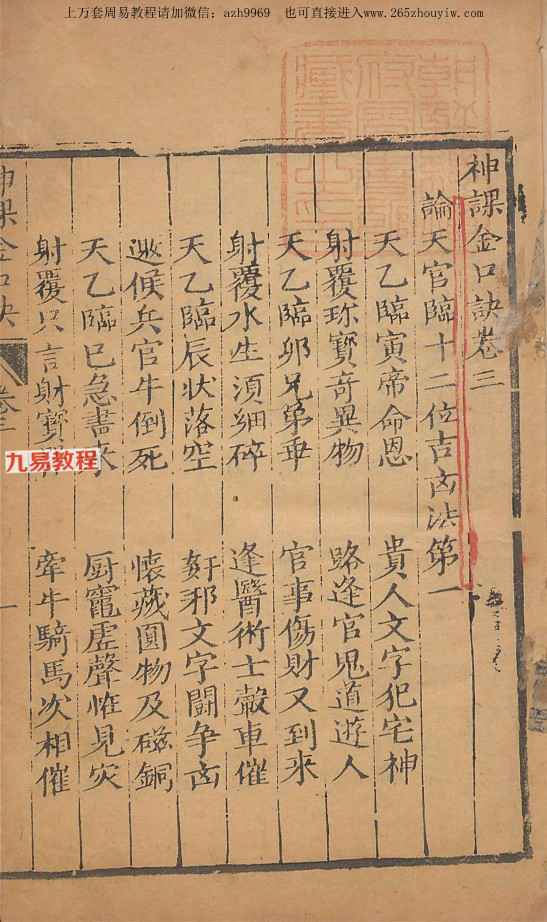 上万套周易教程请加微信：azh9969　也可直接进入www.265zhouyiw.com
神課金口訣卷三
論天官臨十二位吉凶法第一
天乙臨寅帝命恩　貴人文字犯宅神
射覆珎寶奇異物　路逢官鬼道遊人
天乙臨卯兄弟乖　官事傷財又到來
射覆水生須細碎　逢醫術士轂車催
天乙臨辰狀落空　奸邪文字鬪争凶
邀候兵官牛倒死　懷藏圓物及磁銅
天乙臨巳急書來　厨竈虛聲恠見災
射覆只言財寳　牽牛騎馬次相催
神課金口訣
卷三
一
九易教程